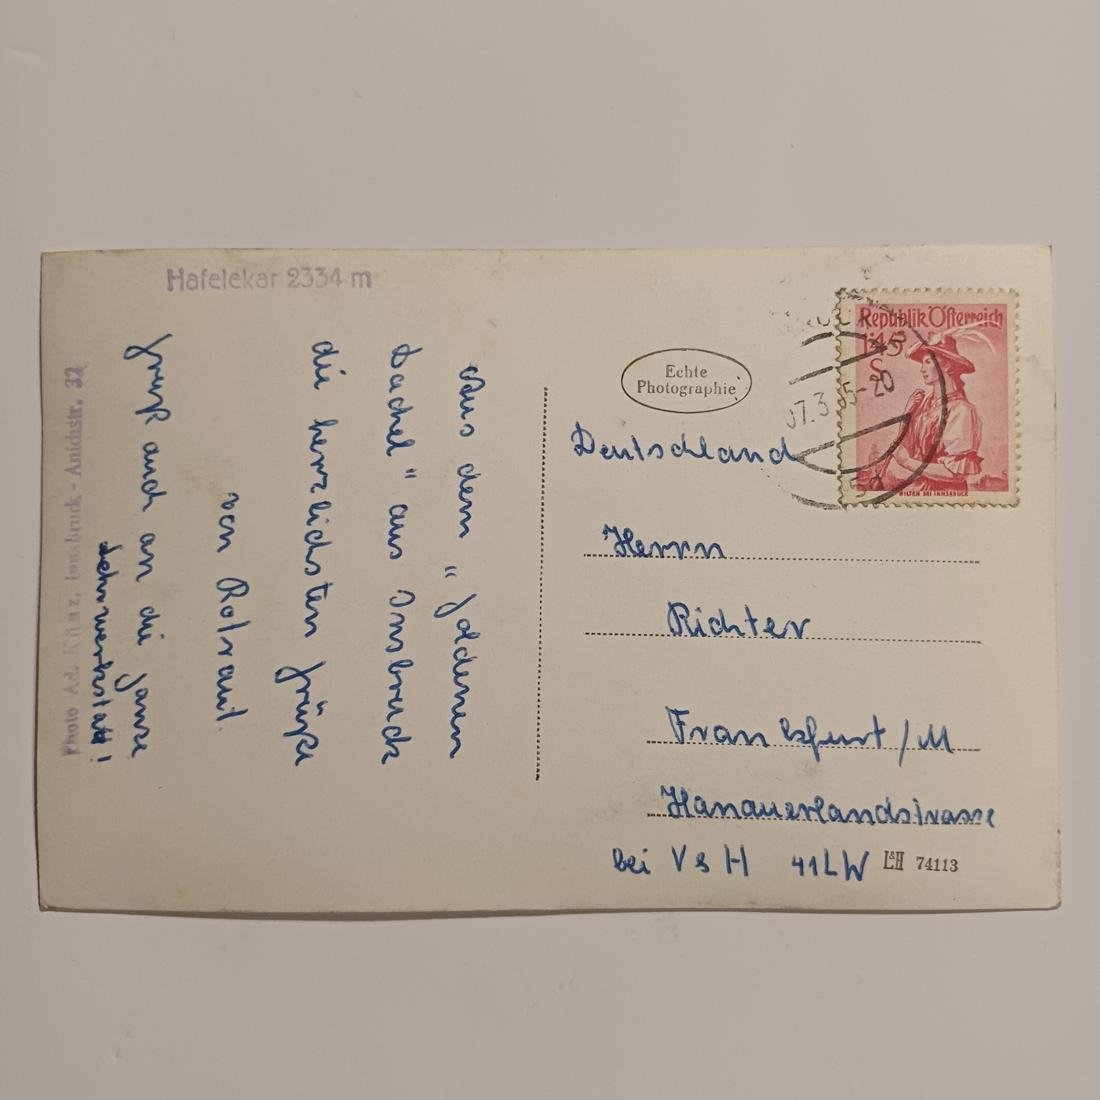 Hafelekar 2334 m
Photo Ad. Künz, Innsbruck - Anichstr. 32
Aus dem "goldenen
Dachel" aus Insbruck
die herzlichsten Grüße
von Rotraut.
Gruß auch an die ganze
Lehrwerkstatt!
Echte
Photographie
Republik Österreich
1.45
S
WILTEN BEI INNSBRUCK
Deutschland
Herrn
Richter
Frankfurt/M
Hanauerlandstrasse
bei V & H 41LW
L&H 74113